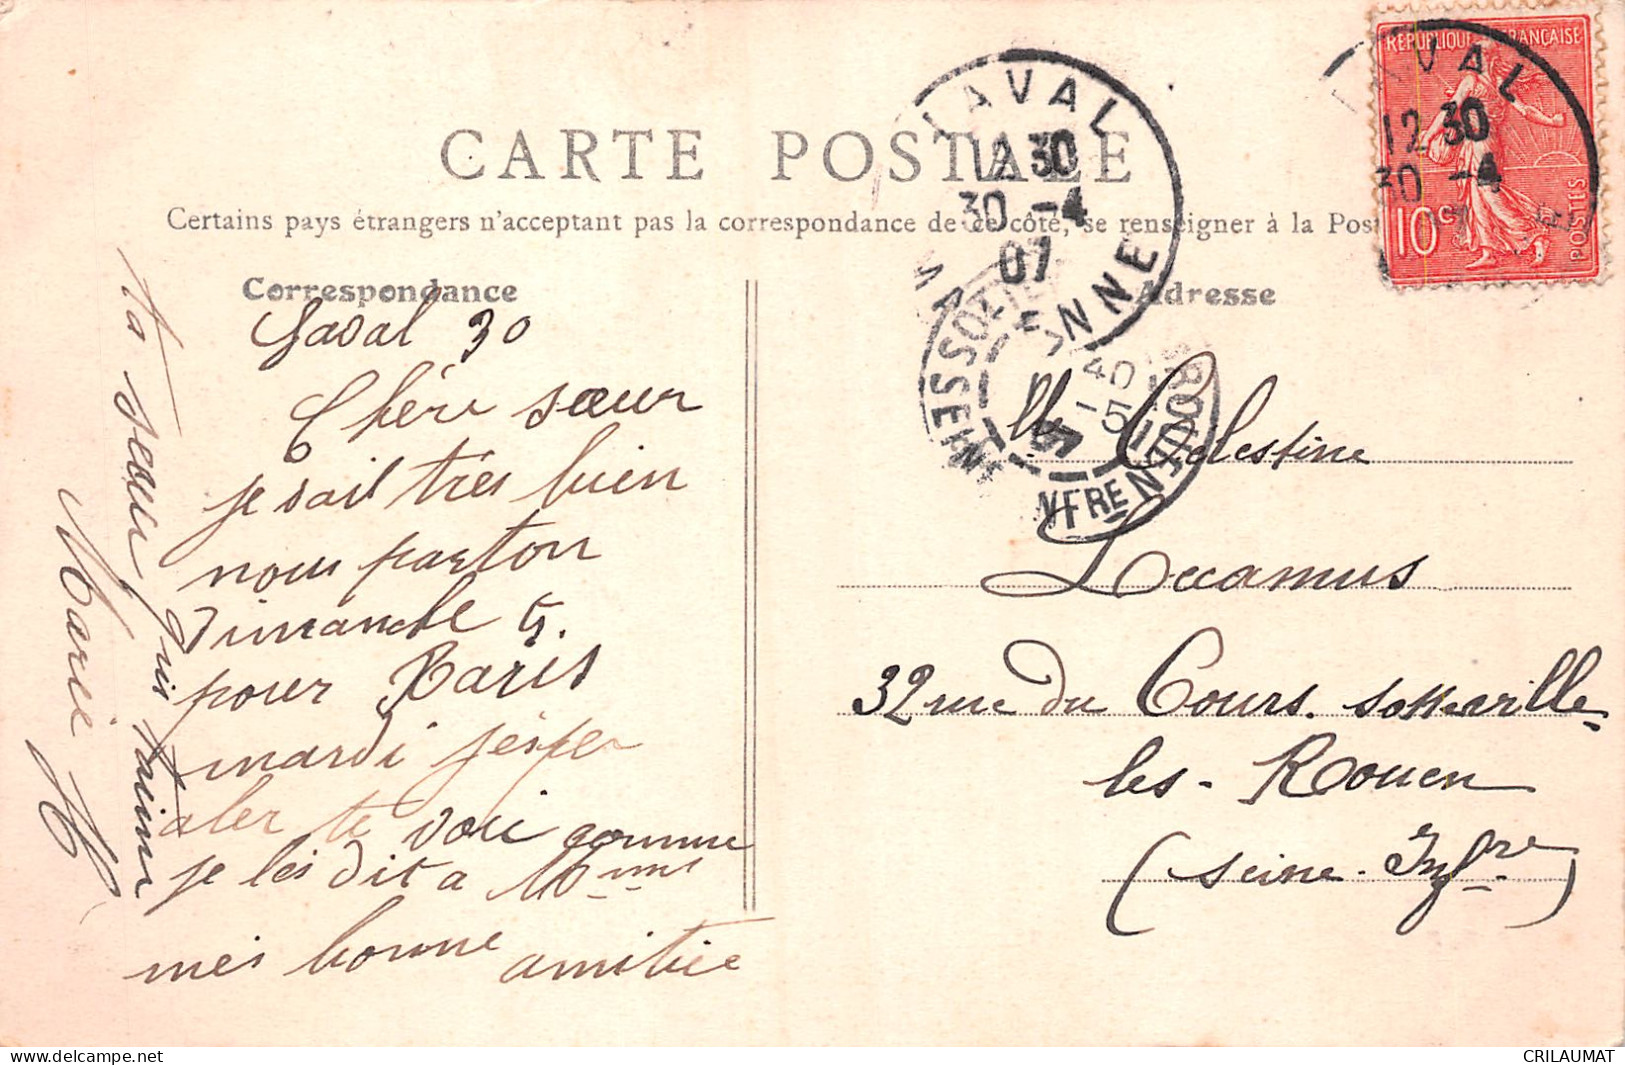 CARTE POSTALE
Certains pays étrangers n'acceptant pas la correspondance de ce côté, se renseigner à la Pos
Correspondance
Laval 30
Chère sœur
je vait très bien
nous parton
Dimanche 5.
pour Paris
mardi j'esper
aler te voir comme
je les dit a
mes bonne amitiée
ta seour qui t'aime
Marie H
Adresse
Mlle Celestine
Lecamus
32 rue du Cours. Sotteville
les-Rouen
(Seine-Infre)
LAVAL
12 30
30 -4
07
MAYENNE
LAVAL
12 30
30 -4
07
REPUBLIQUE FRANÇAISE
10c
POSTES
5
07
INFRE
delcampe.net
CRILAUMAT